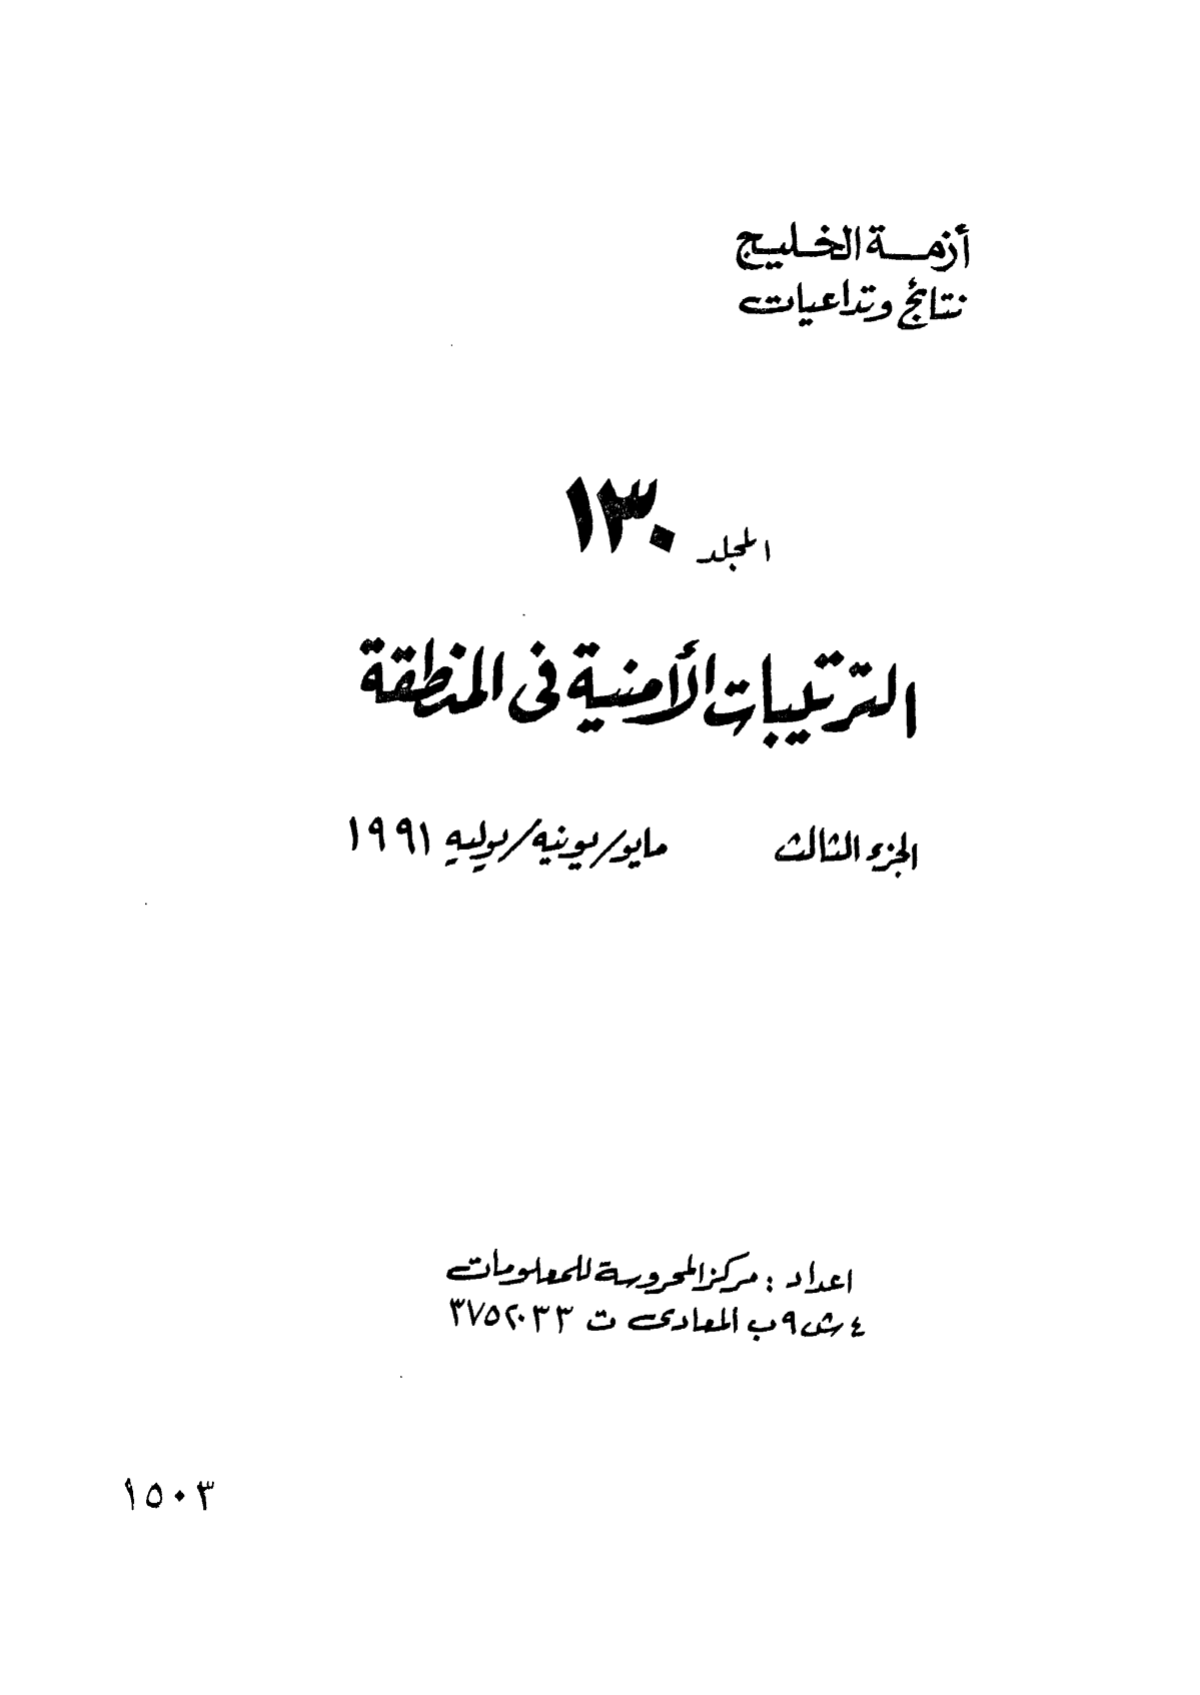 أزمة الخليج
نتائج وتداعيات
المجلد ١٣٠
الترتيبات الأمنية فى المنطقة
الجزء الثالث مايو/يونيه/يوليه ١٩٩١
اعداد : مركز المحروسة للمعلومات
٤ ش ٩ ب المعادى ت ٣٧٥٢٠٣٣
١٥٠٣